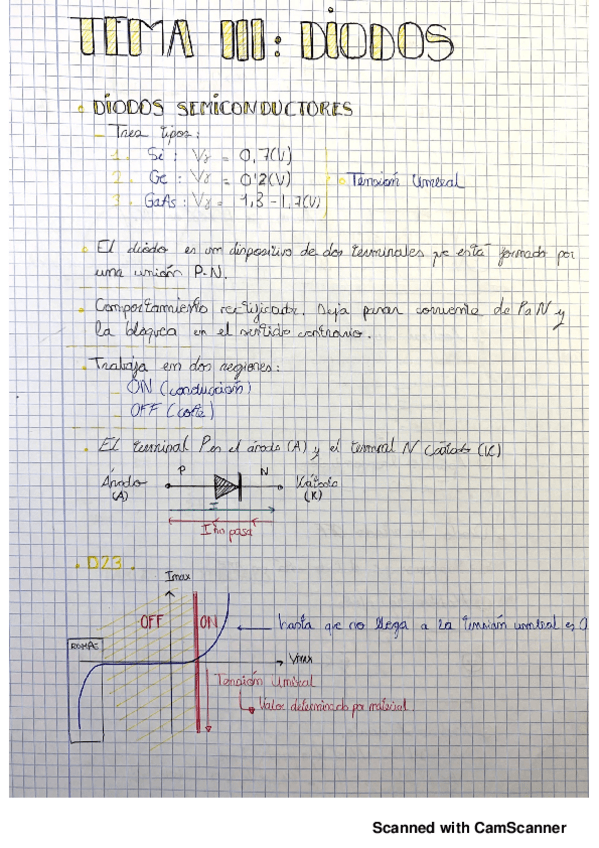 TEMA III: DIODOS
• DIODOS SEMICONDUCTORES
- Tres tipos:
1. Si : Vγ = 0,7(V)
2. Ge : Vγ = 0'2(V) • Tensión Umbral
3. GaAs : Vγ = 1,3 - 1,7(V)
• El diodo es un dispositivo de dos terminales que está formado por
una unión P-N.
• Comportamiento rectificador. Deja pasar corriente de P a N y
la bloquea en el sentido contrario.
• Trabaja en dos regiones:
ON (conducción)
OFF (corte)
• El terminal P es el ánodo (A) y el terminal N Cátodo (K)
Ánodo P N Kátodo
(A) (K)
I
I no pasa
• D23.
Imax
OFF ON hasta que no llega a la tensión umbral es 0
Vmax
Tensión Umbral
Valor determinado por material
Scanned with CamScanner